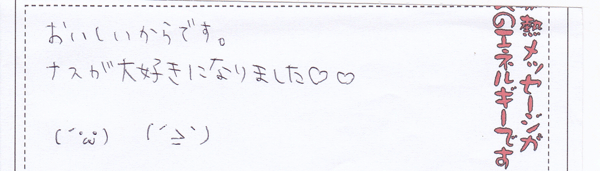 おいしいからです。
ナスが大好きになりました♡♡
(´·ω·`) (´≧`)
熱メッセージが
のエネルギーです